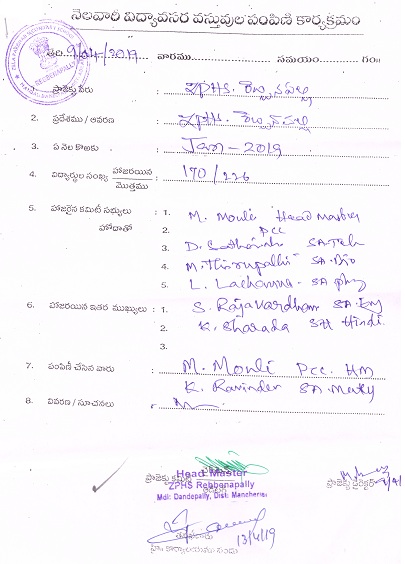 నెలవారీ విద్యావసర వస్తువుల పంపిణి కార్యక్రమం
తేది 9/04/2019 వారము సమయం గం॥
ప్రాజెక్టు పేరు : ZPHS. రెబ్బనపల్లి
2. ప్రదేశము / ఆవరణ : ZPHS. రెబ్బనపల్లి
3. ఏ నెల కొఱకు : Jan - 2019
4. విద్యార్థుల సంఖ్య హాజరయిన / మొత్తము : 170 / 226
5. హాజరైన కమిటీ సభ్యులు : 1. M. Mouli Head Master
హోదాతో 2. PCC
3. D. SA Tel
4. M. Thirupathi SA. Bio
5. L. Lachanna - SA phy
6. హాజరయిన ఇతర ముఖ్యులు : 1. S. Rajavardham SA.
2. K. Sharada SA Hindi.
3.
7. పంపిణీ చేసిన వారు : M. Mouli PCC. HM
K. Ravinder SA.
8. వివరణ / సూచనలు :
Head Master
ZPHS Rebbenapally
Mdl: Dandepally, Dist: Mancherial
ప్రాజెక్టు కమిటీ
ప్రాజెక్ట్ డైరెక్టర్
13/4/19